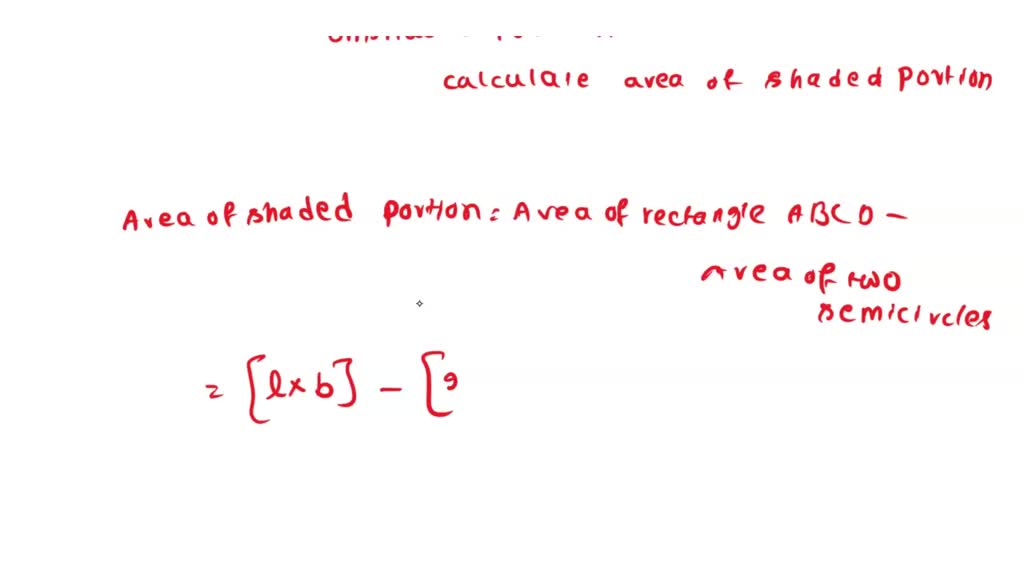 calculate area of shaded portion
Area of shaded portion = Area of rectangle ABCD -
Area of two
semicircles
= [l × b] - [